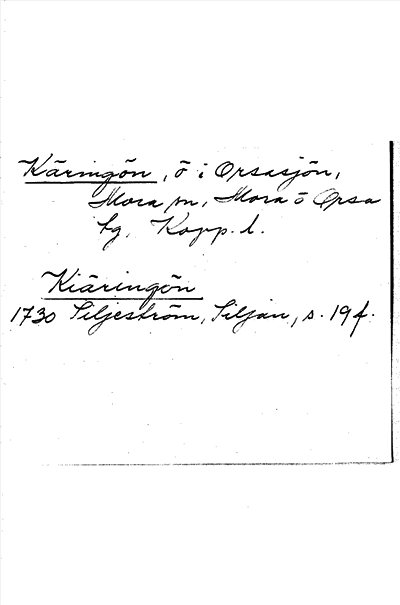 Käringön, ö i Orsasjön,
Mora sn, Mora o Orsa
tg, Kopp. l.
Kiäringön
1730 Siljeström, Siljan, s. 19 f.